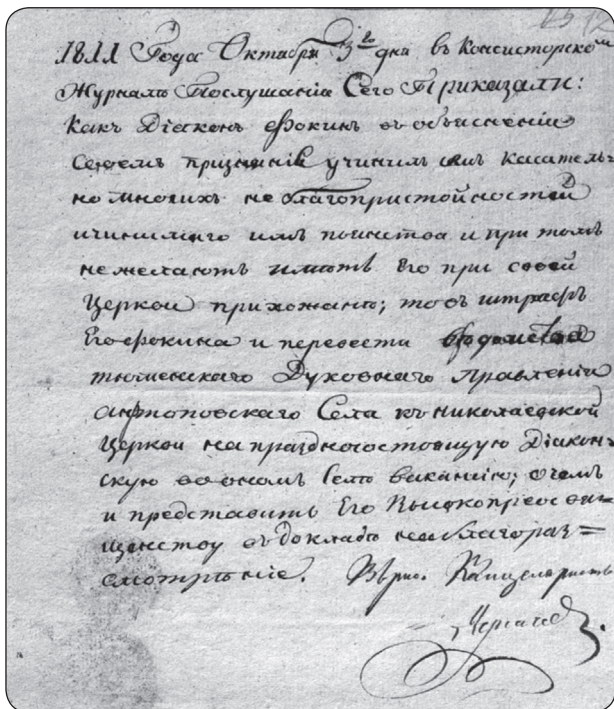 1811 Года Октября 3го дня въ Консисторском
Журналѣ Послушанія Сего Приказали:
Какъ Діаконъ Фокинъ въ объясненіи
своемъ признаніе учинилъ касатель-
но многихъ неблагопристойностей
имъ и при томъ
не желаютъ имѣть Его при своей
Церкви прихожане; то въ штрафъ
Его Фокина и перевести вѣдомства
тюменскаго Духовнаго Правленія
антоповскаго Села къ николаевской
Церкви на праздностоящую Діакон-
скую во ономъ Селѣ ваканцію; о чемъ
и представить Его Высокопреосвя-
щенству въ докладѣ на благораз=
смотрѣніе. Вѣрно. Канцеляристъ